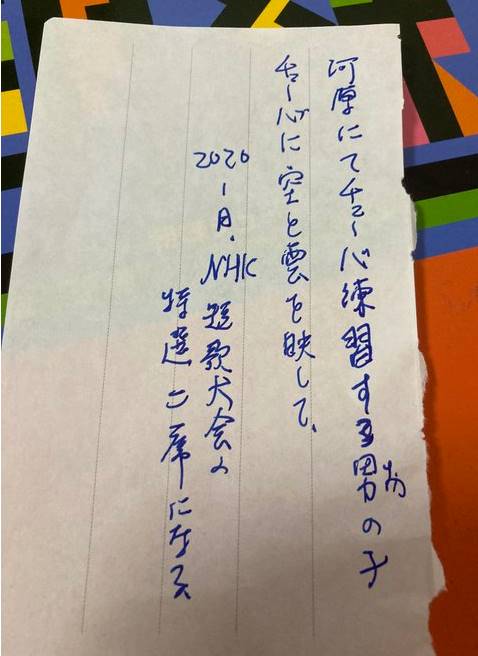 河原にてチューバ練習する男の子
お
チューバに空と雲を映して、
2020
1月、NHK短歌大会の
特選二席になる